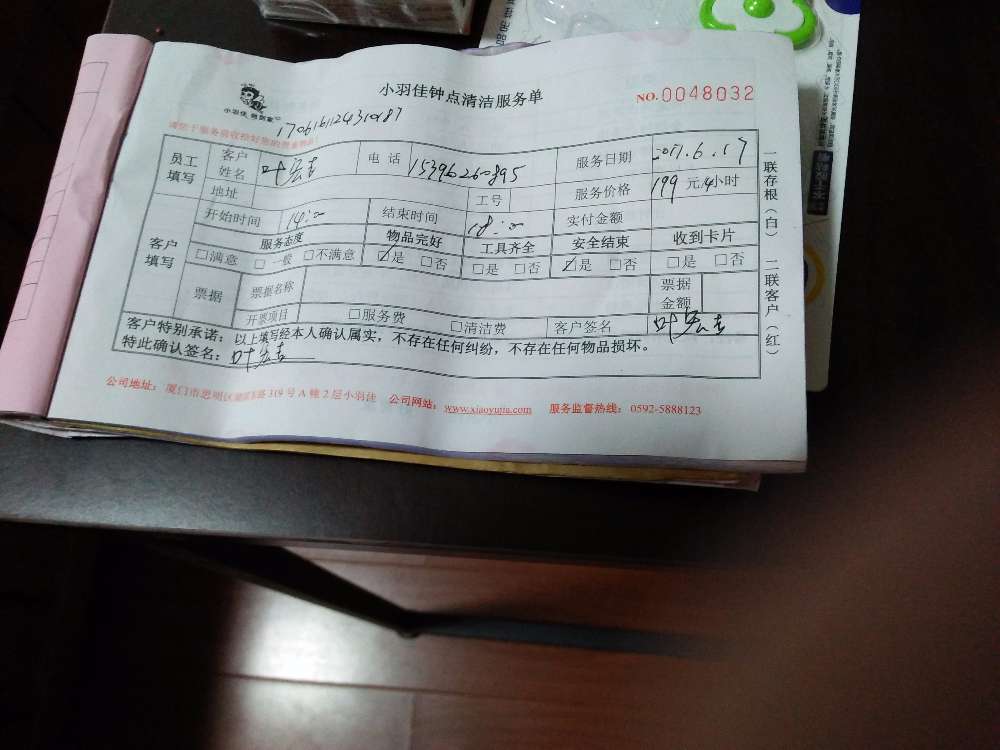 小羽佳钟点清洁服务单
NO.0048032
小羽佳
请您于服务前收检好您的贵重物品
员工填写
客户姓名
电话
15396260895
服务日期
2017.6.17
地址
工号
服务价格
199 元/4小时
客户填写
开始时间
14:00
结束时间
18:00
实付金额
服务态度
物品完好
工具齐全
安全结束
收到卡片
□满意 □一般 □不满意
☑是 □否
□是 □否
☑是 □否
□是 □否
票据
票据名称
票据金额
开票项目
□服务费
□清洁费
客户签名
客户特别承诺：以上填写经本人确认属实，不存在任何纠纷，不存在任何物品损坏。
特此确认签名：
一联存根（白） 二联客户（红）
公司地址：厦门市思明区 319号A幢2层小羽佳 公司网站：www.xiaoyujia.com 服务监督热线：0592-5888123